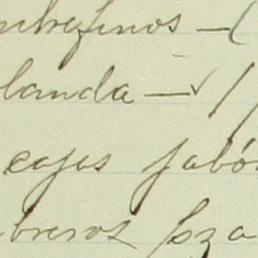 ntrefinos — (
landa —
cajas jabó
breros pza